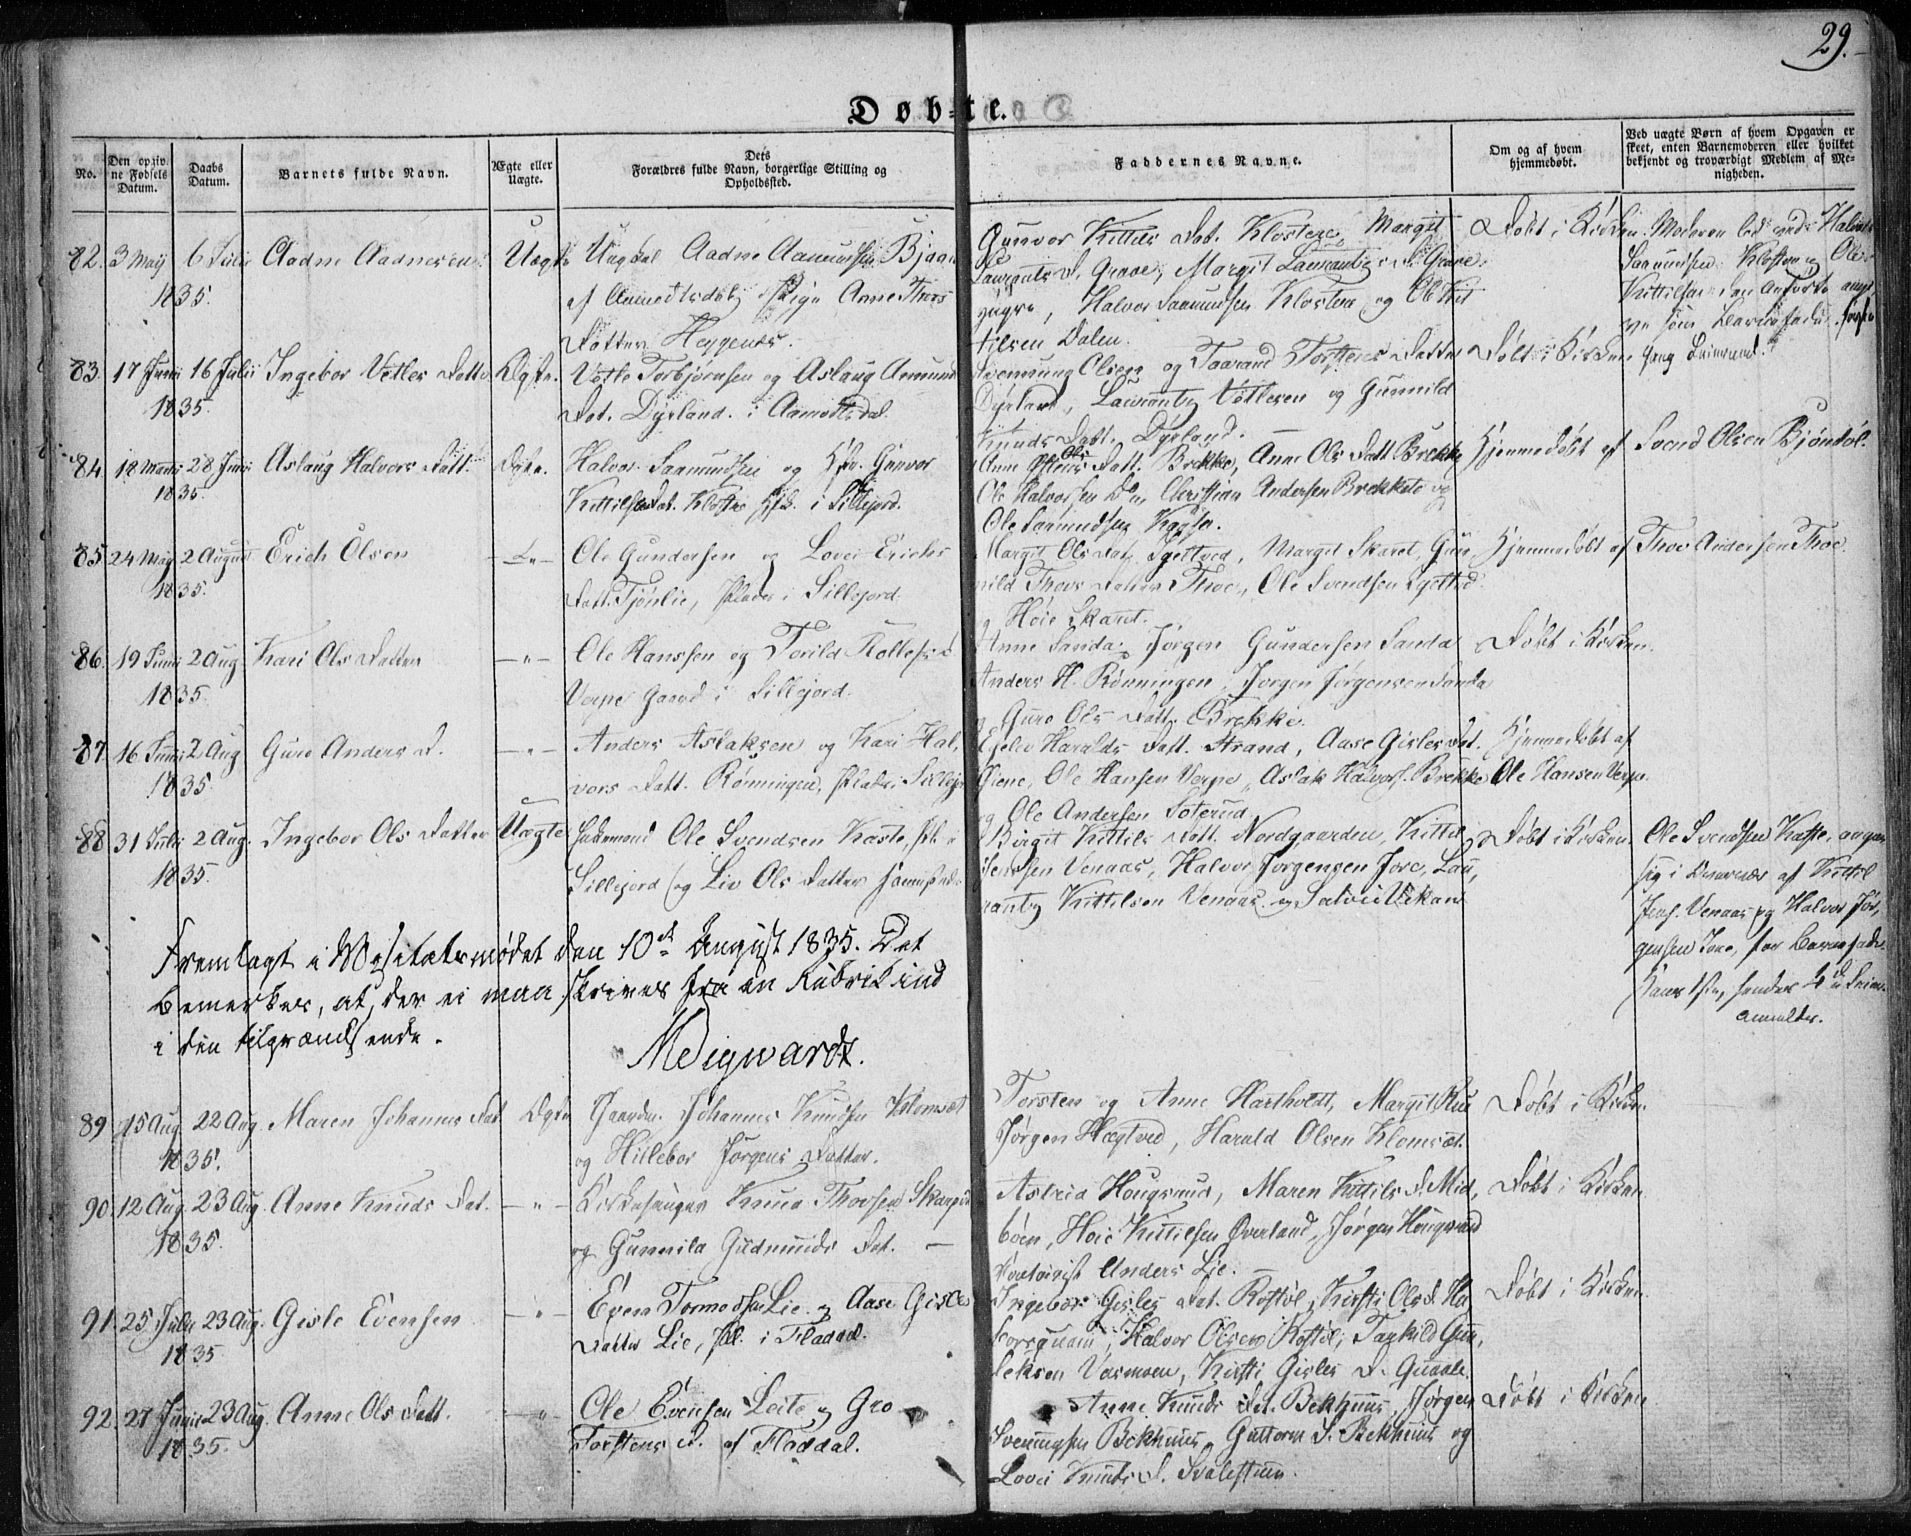 29.
Døbte.
No.
Den opgivne Fødsels Datum.
Daabs Datum.
Barnets fulde Navn.
Ægte eller Uægte.
Dets Forældres fulde Navn, borgerlige Stilling og Opholdssted.
Faddernes Navne.
Om og af hvem hjemmedøbt.
Ved uægte Børn af hvem Opgaven er skeet, enten Barnemoderen eller hvilket bekjendt og troværdigt Medlem af Menigheden.
82. 3 May 1835. 6 Julii Aadne Aadnesen Uægte
Ungkal Aadne Aamundsen Bjaa
af Aamodtsdal, Pige Anne Thors
Datter Heggenes.
Gunvor Kittils Dat. Klostere, Margit
Laurants D. Grave, Margit Laurantz D. Grave
yngre, Halvor Saamundsen Klostere og Ole Kit
tilsen Dalen.
Døbt i Kirken.
Moderen lod ved Halvor
Saamundsen Klostere og Ole
Kittilsen den Anførte angi
ve som Barnefader.
83. 17 Juni 1835. 16 Julii Ingebor Vetles Datter Ægte.
Vetle Torbjørnsen og Aslaug Aamund
Dat. Dyrland i Aamotsdal.
Svennung Olsen og Taarand Torsteens Datter
Dyrland, Laurantz Vetlesen og Gunnild
Knuds Datt. Dyrland.
Døbt i Kirken
84. 18 Marts 1835. 28 Juni Aslaug Halvors Datt. Ægte.
Halvor Saamundsen og Hstr. Gunvor
Kittilsdat. Klostre i Sillejord.
Anne Ols Datt. Brekke, Anne Ols Datt Brekke
Ole Halvorsen Do, Christian Andersen Brekkete og
Ole Saamundsen
Hjemmedøbt af Svend Olsen Bjøndøl.
85. 24 May 1835. 2 August Erich Olsen — " —
Ole Gundersen og Lovei Erichs
Datt. Tjønlie, Plads i Sillejord.
Margit Ols Dat. Sgettved, Margit Skaret, Gun
nild Thors Datter Thoe, Ole Svendsen Sgettved
og Høie Skaret.
Hjemmedøbt af Thor Andersen Thoe.
86. 19 Juni 1835. 2 Aug. Kari Ols Datter — " —
Ole Hanssen og Torild Rollefs D.
Verpe Gaard i Sillejord.
Anne Sanda, Jørgen Gundersen Sanda
Anders H. Rønningen, Jorgen Jørgensen Sanda
og Guro Ols Datt. Brekke.
Døbt i Kirken.
87. 16 Juni 1835. 2 Aug Guro Anders D. — " —
Anders Aslaksen og Kari Hal,
vors Datt. Rønningen, Plads, Sillejor
Haralds Datt. Strand, Aase Gisles Dat.
Ole Hansen Verpe, Aslak Halvors. Brekke
og Ole Andersen Soterud
Hjemmedøbt af
Ole Hansen Verpe.
88. 31 Julii 1835. 2 Aug. Ingebor Ols Datter Uægte
Ole Svendsen Kaste, Pl. i
Sillejord og Liv Ols Datter
Birgit Kittils Datt. Nordgaarden, Kittil
Jensen Venaas, Halvor Jorgensen Jore, Lau,
rantz Kittilsen Venaas og
Døbt i Kirken.
Ole Svendsen Kaste, angav
sig i Nærvær af Kittil
Jens. Venaas og Halvor Jør,
gensen Jore, for Barnefader
Fremlagt i Visitatsmødet den 10de August 1835. Det
bemerkes, at der ei maa skrives fra en Rubrik ind
i den tilgrændsende.
M Deigwardt.
89. 15 Aug 1835. 22 Aug. Maren Johannes Dat Ægte
Gaardm. Johannes Knudsen Klomset
og Hillebor Jørgens Datter.
Torsten og Anne Hartholdt, Margit
Jørgen Hegtved, Harald Olsen Klomset.
Døbt i Kirken.
90. 12 Aug. 1835. 23 Aug. Anne Knuds Dat. — " —
Kirkesanger Knud Thorsen
og Gunnild Gudmunds Dat.
Astrid Hougrund, Maren Kittils D. Mid,
bøen, Høie Kittilsen Øverland, Jørgen Hougrund
Anders Lie.
Døbt i Kirken
91. 25 Julii 1835 23 Aug. Gisle Evensen — " —
Even Tormodsen Lie og Aase Gisle
Datter Lie, Pl. i Fladdal.
Ingebor Gisles Dat. Røstøl, Kirsti Ols D.
Halvor Olsen Røstøl, Tarkild Gun,
leksen Varmoen, Kirsti Gisles D.
Døbt i Kirken
92. 27 Junii 1835. 23 Aug. Anne Ols Datt. — " —
Ole Evensen Leite og Gro
Torstens D. af Fladdal.
Anne Knuds Dat. Bekhuus, Jørgen
Svenungsen Bekhuus, Guttorm S. Bekhuus og
Lovei Knuds D. Svalestuen.
Døbt i Kirken